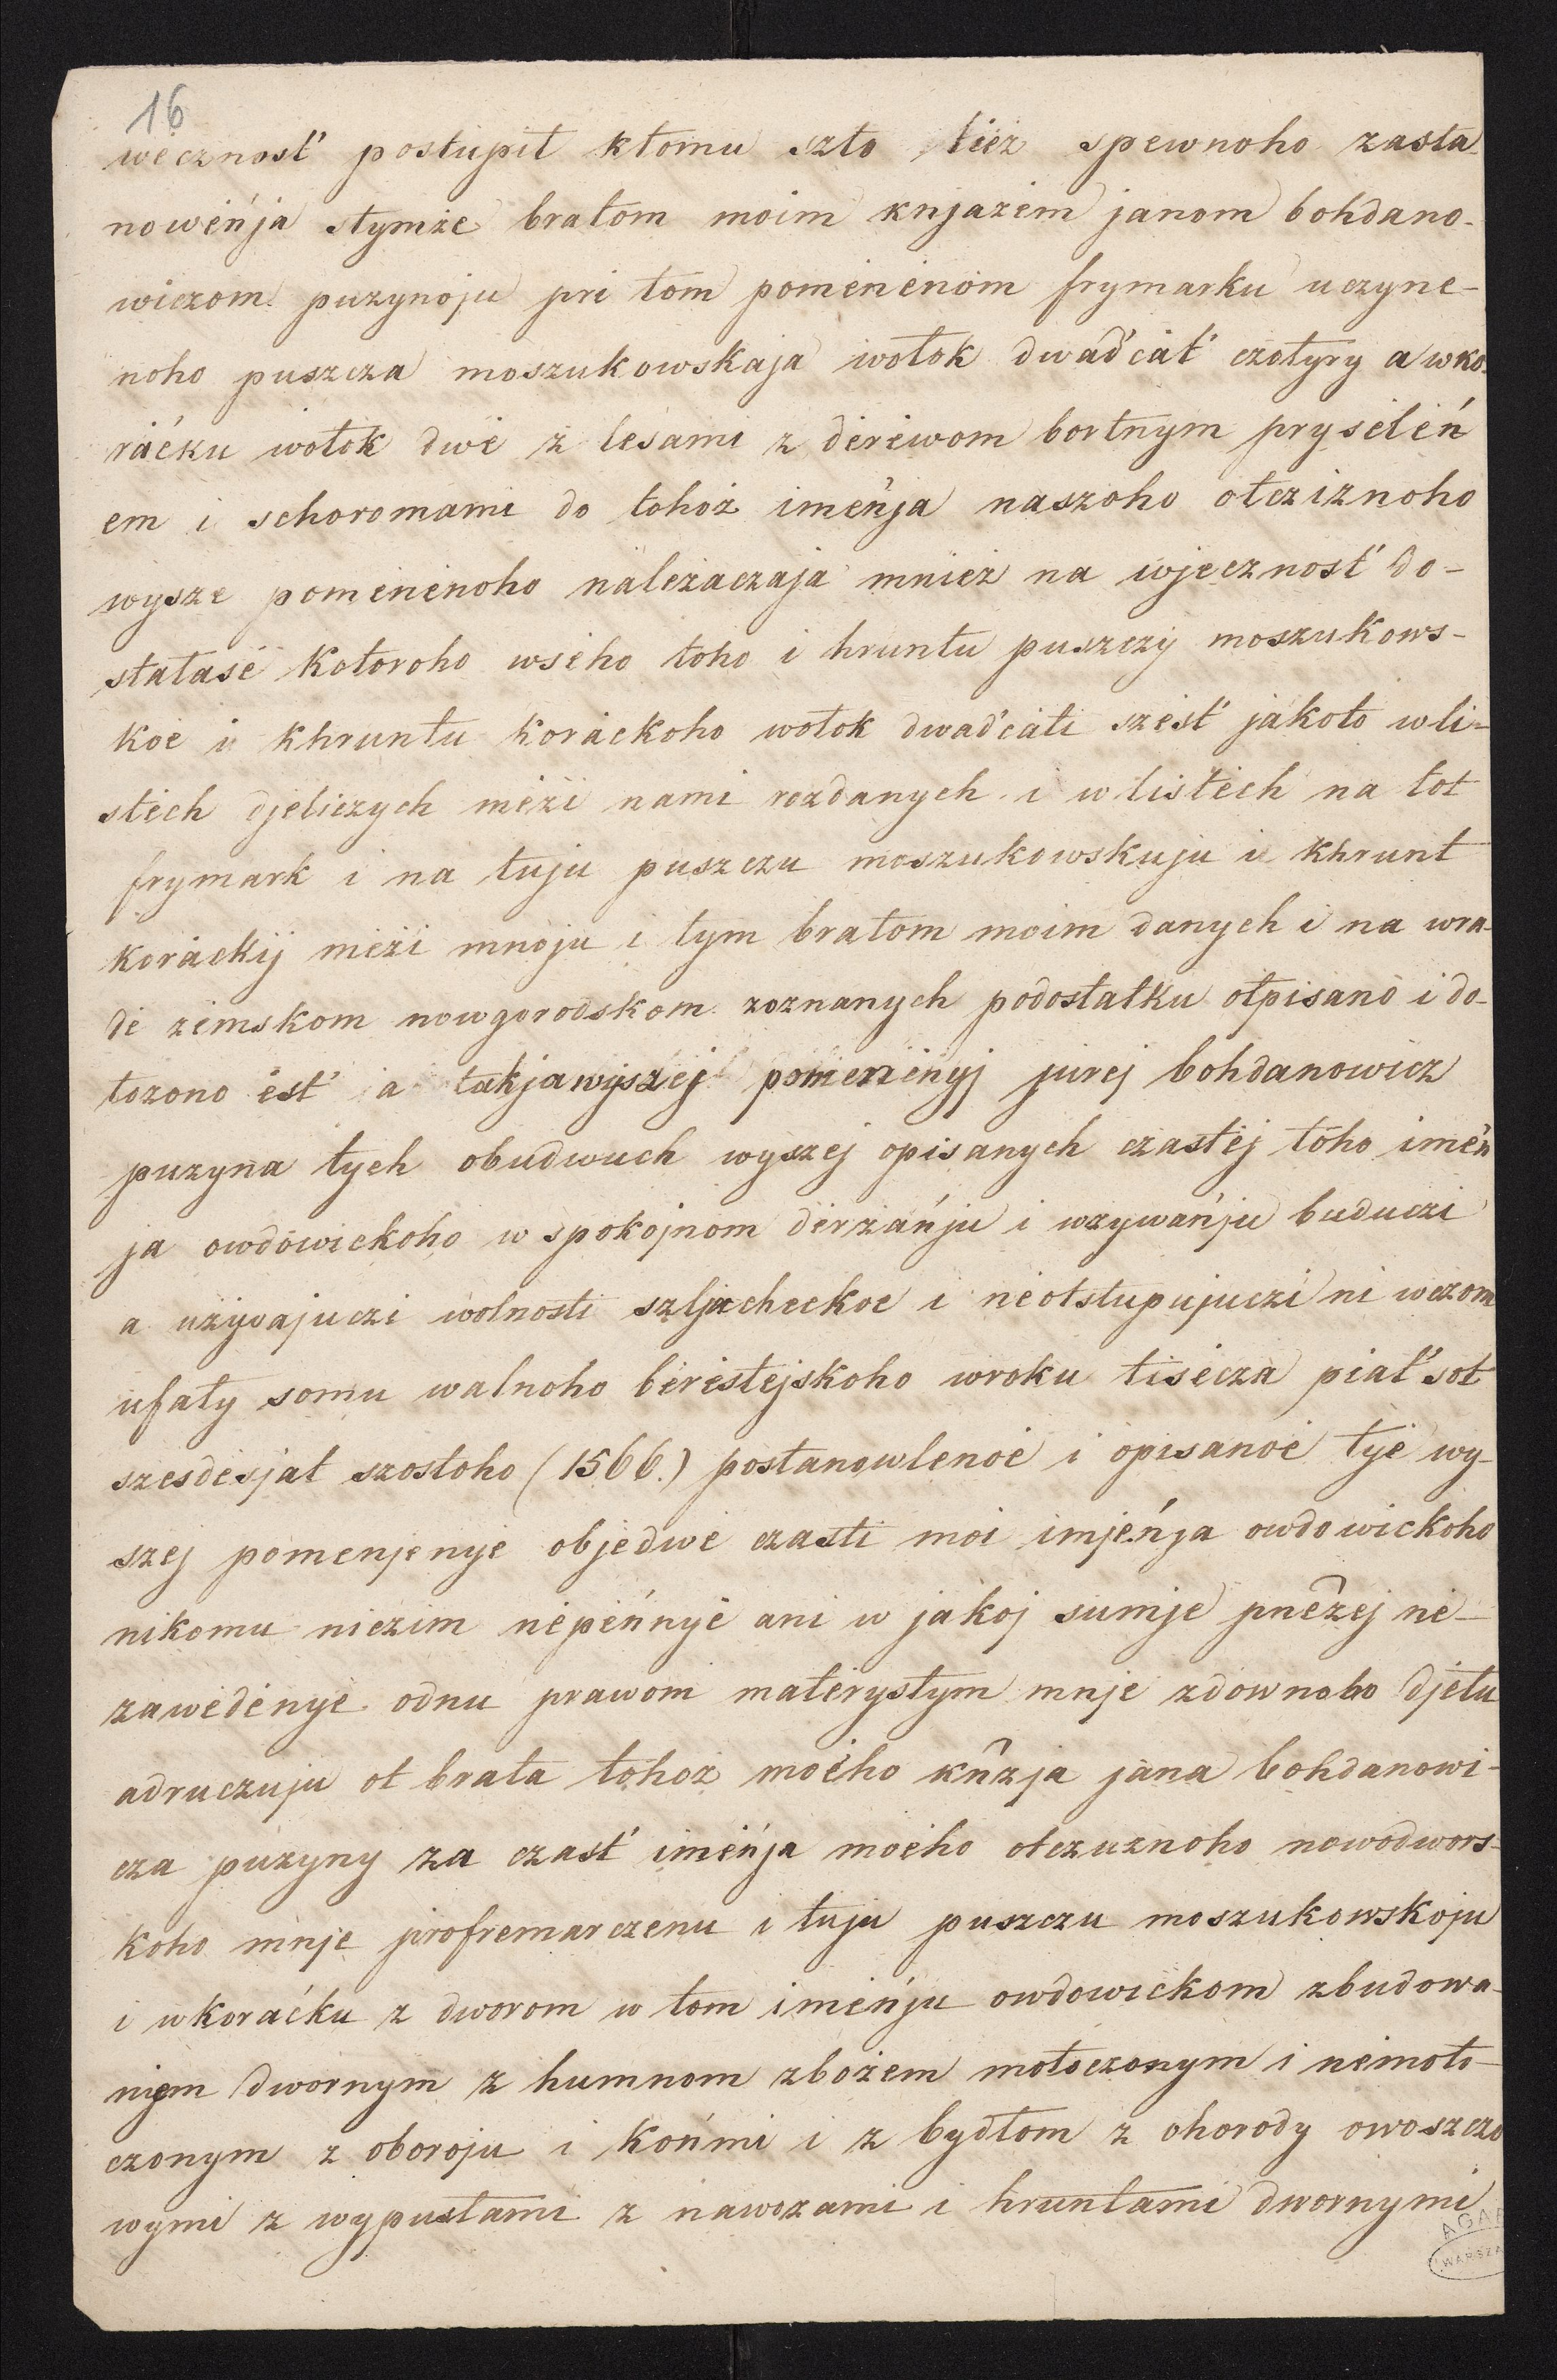 16
wëcznosť postupił ktomu szto tiëż spewnoho zasta-
nowëńja stymże bratom moim knjazëm janom bohdano-
wiczom puzynoju pri tom pomënënom frymarku uczyne-
noho puszcza moszukowskaja wołok dwaďcáť czotyry a wko-
ráćku wołok dwë z lësami z dërëwom bortnym prysëlëń
em i schoromami do tohoż imëńja naszoho otcziznoho
wysze pomënënoho nalëżaczaja mniëż na wjecznosť do-
stałasë kotoroho wsëho toho i hruntu puszczy moszukows-
koë i khruntu koráckoho wołok dwaďcáti szësť jakoto wli-
stëch djeliczych mëżi nami rozdanych i w listëch na tot
frymark i na tuju puszczu moszukowskuju i khrunt
koráckij mëżi mnoju i tym bratom moim danych i na wra-
dë zëmskom nowgorodskom zoznanych podostatku otpisano i do-
łożono ësť a takjawyszëj pomënënyj jurëj bohdanowicz
puzyna tych obudwuch wyszej opisanych czastëj toho imëń
ja owdowickoho w spokojnom dërżańju i wżywańju buduczi
a używajuczi wolnosti szljacheckoe i nëotstupujuczi ni wczom
ufały somu walnoho bërëstejskoho wroku tisëcza piať sot
szesdësjat szostoho (1566.) postanowlenoë i opisanoë tyë wy-
szej pomenjenyë objedwë czasti moi imjeńja owdowickoho
nikomu niczim nëpëńnyë ani w jakoj sumje pnêzej në-
zawëdënyë odnu prawom matërystym mnje zdownoho djełu
adruczuju ot brata tohoż moëho knzja jana bohdanowi-
cza puzyny za czasť imëńja moëho otczuznoho nowodwors-
koho mnje profremarczenu i tuju puszczu moszukowskoju
i wkoraćku z dworom w tom imëńju owdowickom zbudowa-
niem dwornym z humnom zbożëm mołoczonym i nëmoło-
czonym z oboroju i końmi i z bydłom z ohorody owoszczo
wymi z wypustami z nawozami i hruntami dwornymi
AGAD
WARSZA